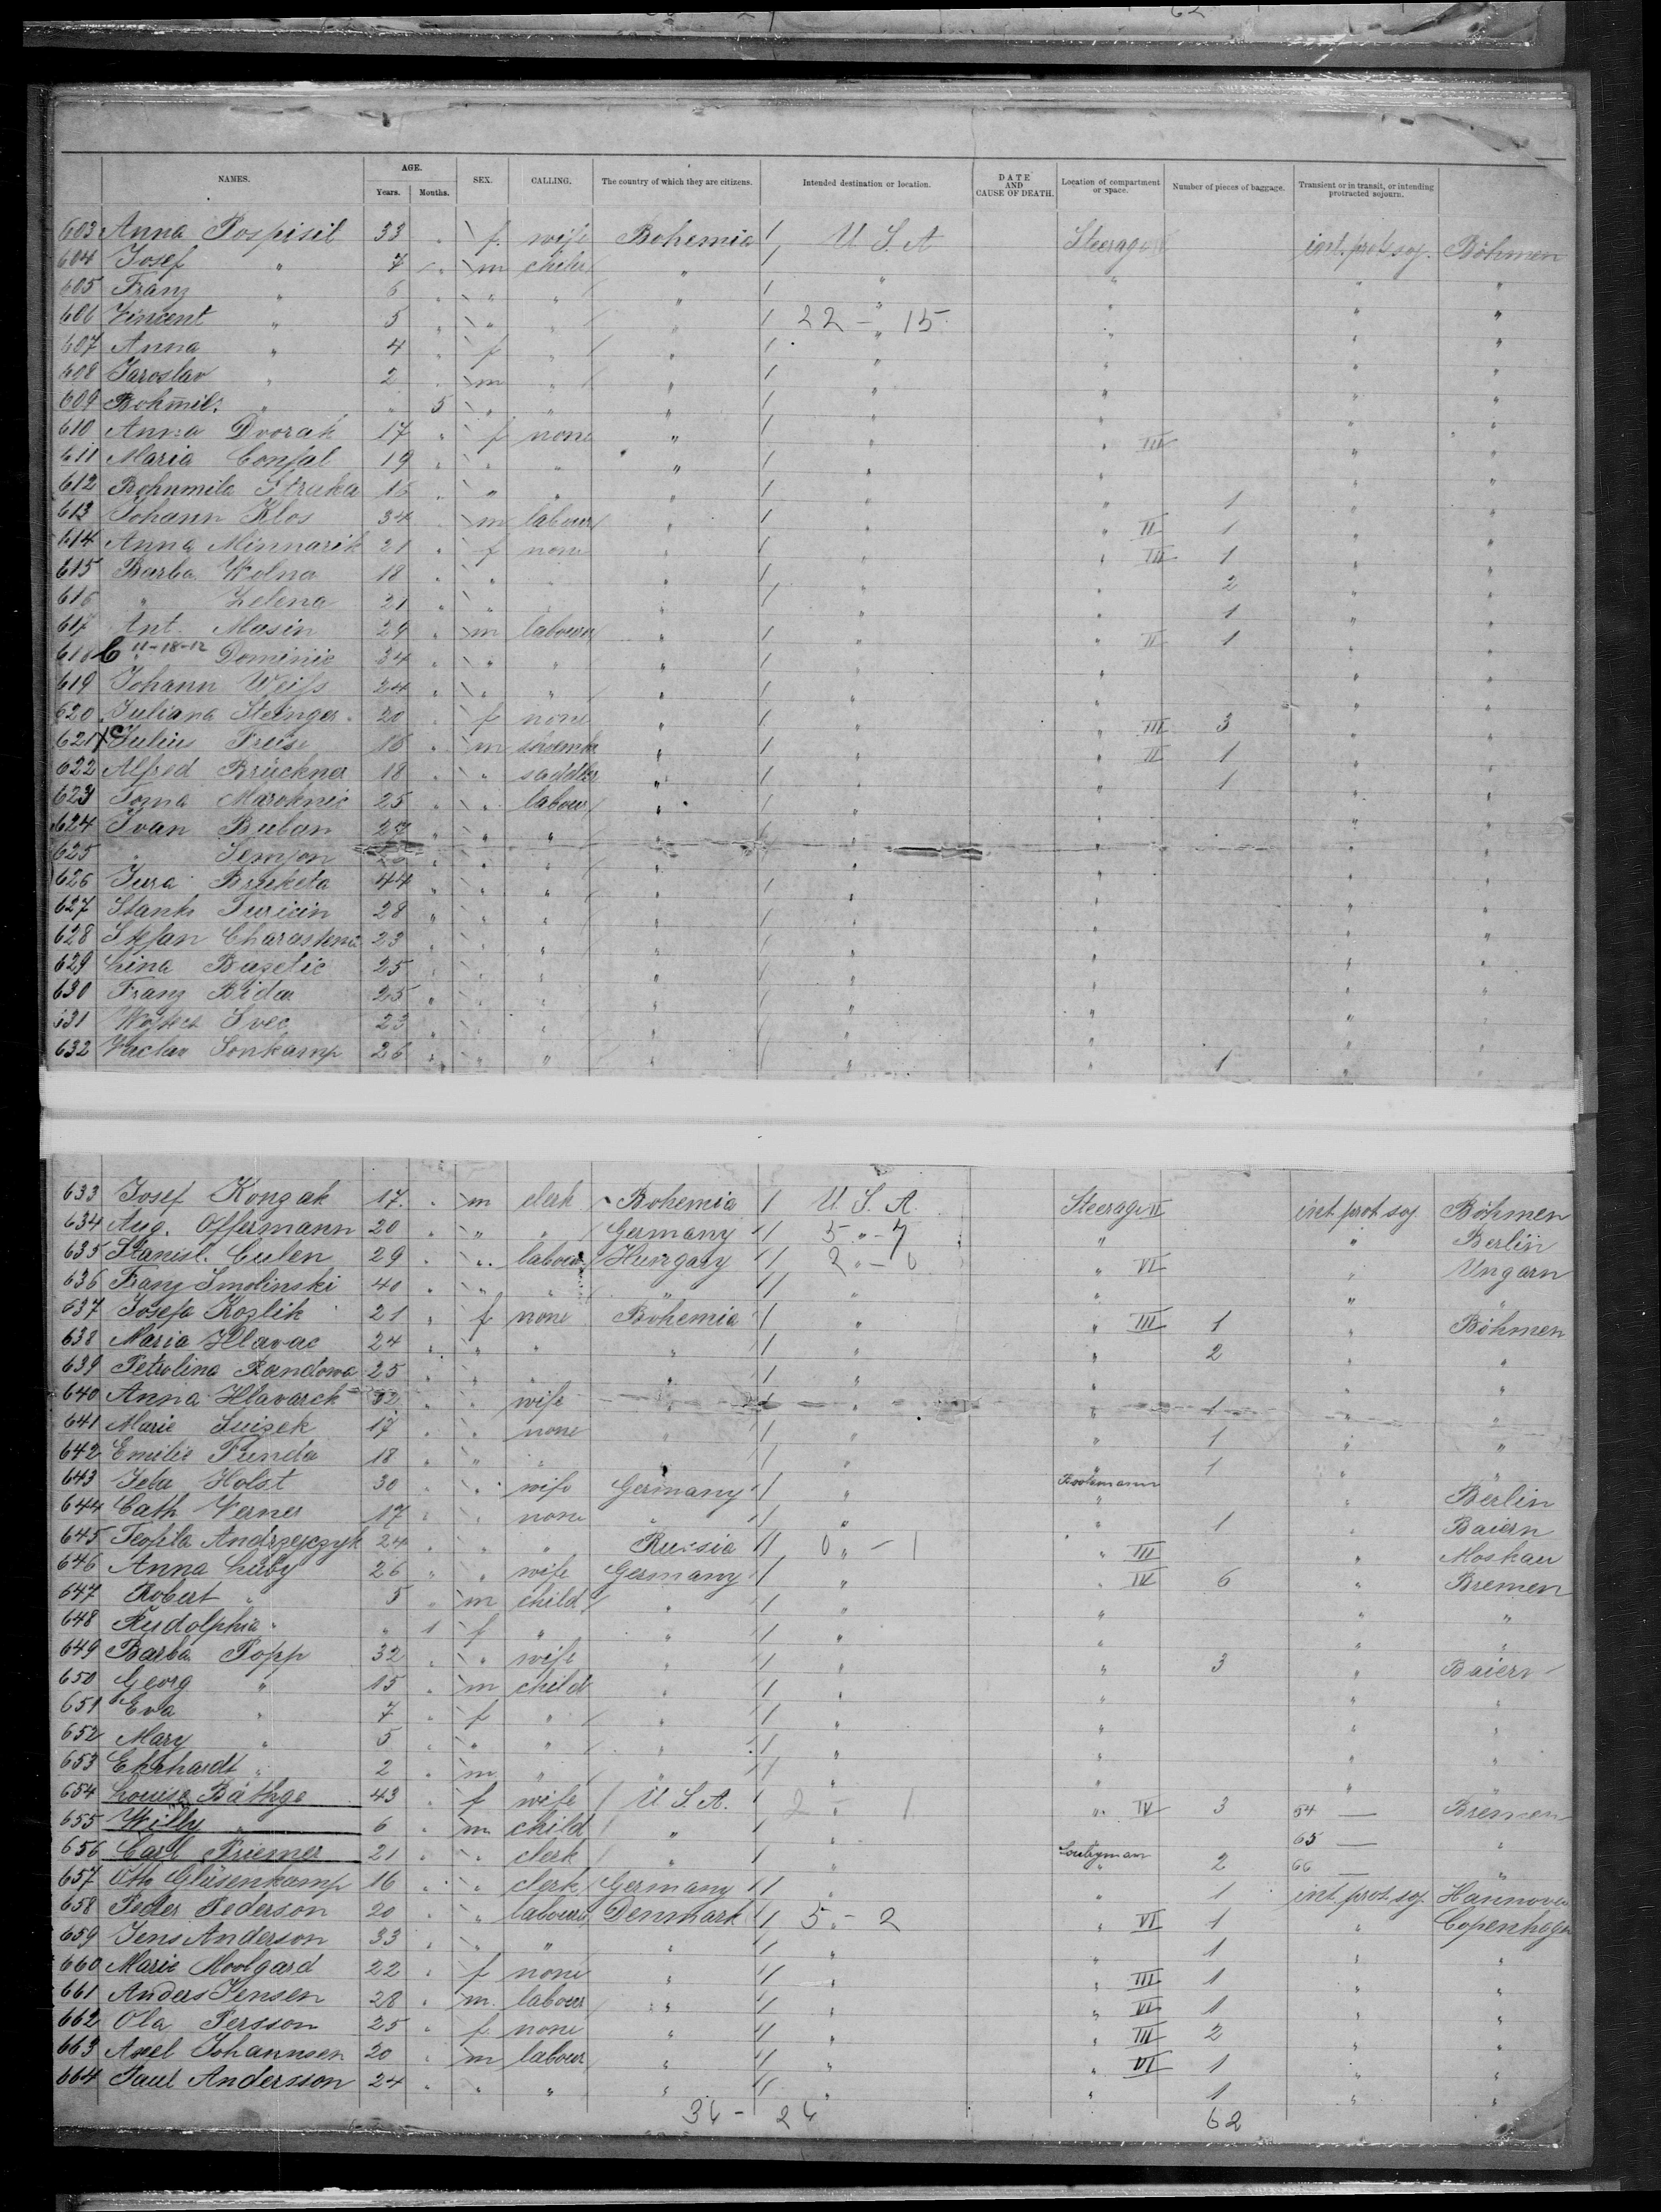 NAMES. AGE. Years. Months. SEX. CALLING. The country of which they are citizens. Intended destination or location. DATE AND CAUSE OF DEATH. Location of compartment or space. Number of pieces of baggage. Transient or in transit, or intending protracted sojourn.
603 Anna Pospisil 33 " f. wife Bohemia U S A Steerage int. prot. soj. Böhmen
604 Josef " 7 " m child " " " " "
605 Franz " 6 " " " " " " " "
606 Vincent " 5 " " " " 22 - 15 " " "
607 Anna " 4 " f " " " " " "
608 Jaroslav " 2 " m " " " " " "
609 Bohmil. " " 5 " " " " " " "
610 Anna Dvorak 17 " f none " " " III " "
611 Maria Conjal 19 " " " " " " "
612 Bohumila Straka 16 " " " " " " 1 " "
613 Johann Klos 34 " m labour " " " II 1 " "
614 Anna Minnarik 21 " f none " " " III 1 " "
615 Barba Wolna 18 " " " " " " 2 " "
616 " Zelena 21 " " " " " " 1 " "
617 Ant. Masin 29 " m labour " " " II 1 " "
618 C 11-18-12 Dominic 34 " " " " " " " "
619 Johann Weiss 24 " " " " " " "
620 Juliana Steinger 20 " f none " " " III 3 " "
621 Julius 16 " m " " " II 1 " "
622 Alfred Brückner 18 " " saddler " " " 1 " "
623 Marohnic 25 " " labour " " " "
624 Ivan Buban 27 " " " " " " " "
625 " " " " " " " " "
626 Jura Bruketa 44 " " " " " " " "
627 Stanko Turicin 28 " " " " " " " "
628 Stefan 23 " " " " " " " "
629 Buzetic 25 " " " " " " " "
630 Franz Bida 25 " " " " " " " "
631 Svec 23 " " " " " " " "
632 Vaclav Sonkamp 26 " " " " " " 1 " "
633 Josef Konzak 17 " m clerk Bohemia U. S. A. Steerage II int. prot. soj. Böhmen
634 Aug. Offermann 20 " " " Germany 5 - 7 " " Berlin
635 Stanisl. Culen 29 " " labour Hungary 2 - 0 " VI " Ungarn
636 Franz Smolinski 40 " " " " " " " "
637 Josefa Kozlik 21 " f none Bohemia " " III 1 " Böhmen
638 Maria Hlavac 24 " " " " " " 2 " "
639 Petrolina Randowa 25 " " " " " " " "
640 Anna Hlavarek 32 " " wife " " " 1 " "
641 Marie 17 " " none " " " 1 " "
642 Emilie Funda 18 " " " " " " 1 " "
643 Holst 30 " " wife Germany " Bootsmann " Berlin
644 Cath Verner 17 " " none " " " 1 " Baiern
645 Teofila Andrzejczyk 24 " " " Russia 0 - 1 " III " Moskau
646 Anna Luby 26 " " wife Germany " " IV 6 " Bremen
647 Robert " 5 " m child " " " " "
648 Rudolphia " " 1 f " " " " " "
649 Barba Popp 32 " " wife " " " 3 " Baiern
650 Georg " 15 " m child " " " " "
651 Eva " 7 " f " " " " " "
652 Mary " 5 " " " " " " " "
653 Ehrhardt " 2 " m " " " " " "
654 Louise Bäthge 43 " f wife U. S. A. 2 " 1 " IV 3 64 — Bremen
655 Willy " 6 " m child " " 65 — "
656 Carl Friemer 21 " " clerk " " 2 66 — "
657 Otto Glüsenkamp 16 " " clerk Germany " " 1 int. prot. soj. Hannover
658 Peder Pederson 20 " " labour Denmark 5 - 2 " VI 1 " Copenhagen
659 Jens Anderson 33 " " " " " " 1 " "
660 Marie Moolgard 22 " f none " " " III 1 " "
661 Anders Jensen 28 " m. labour " " " VI 1 " "
662 Ola Persson 25 " f none " " " III 2 " "
663 Axel Johannsen 20 " m labour " " " VI 1 " "
664 Paul Andersson 24 " " " " " " 1 " "
62